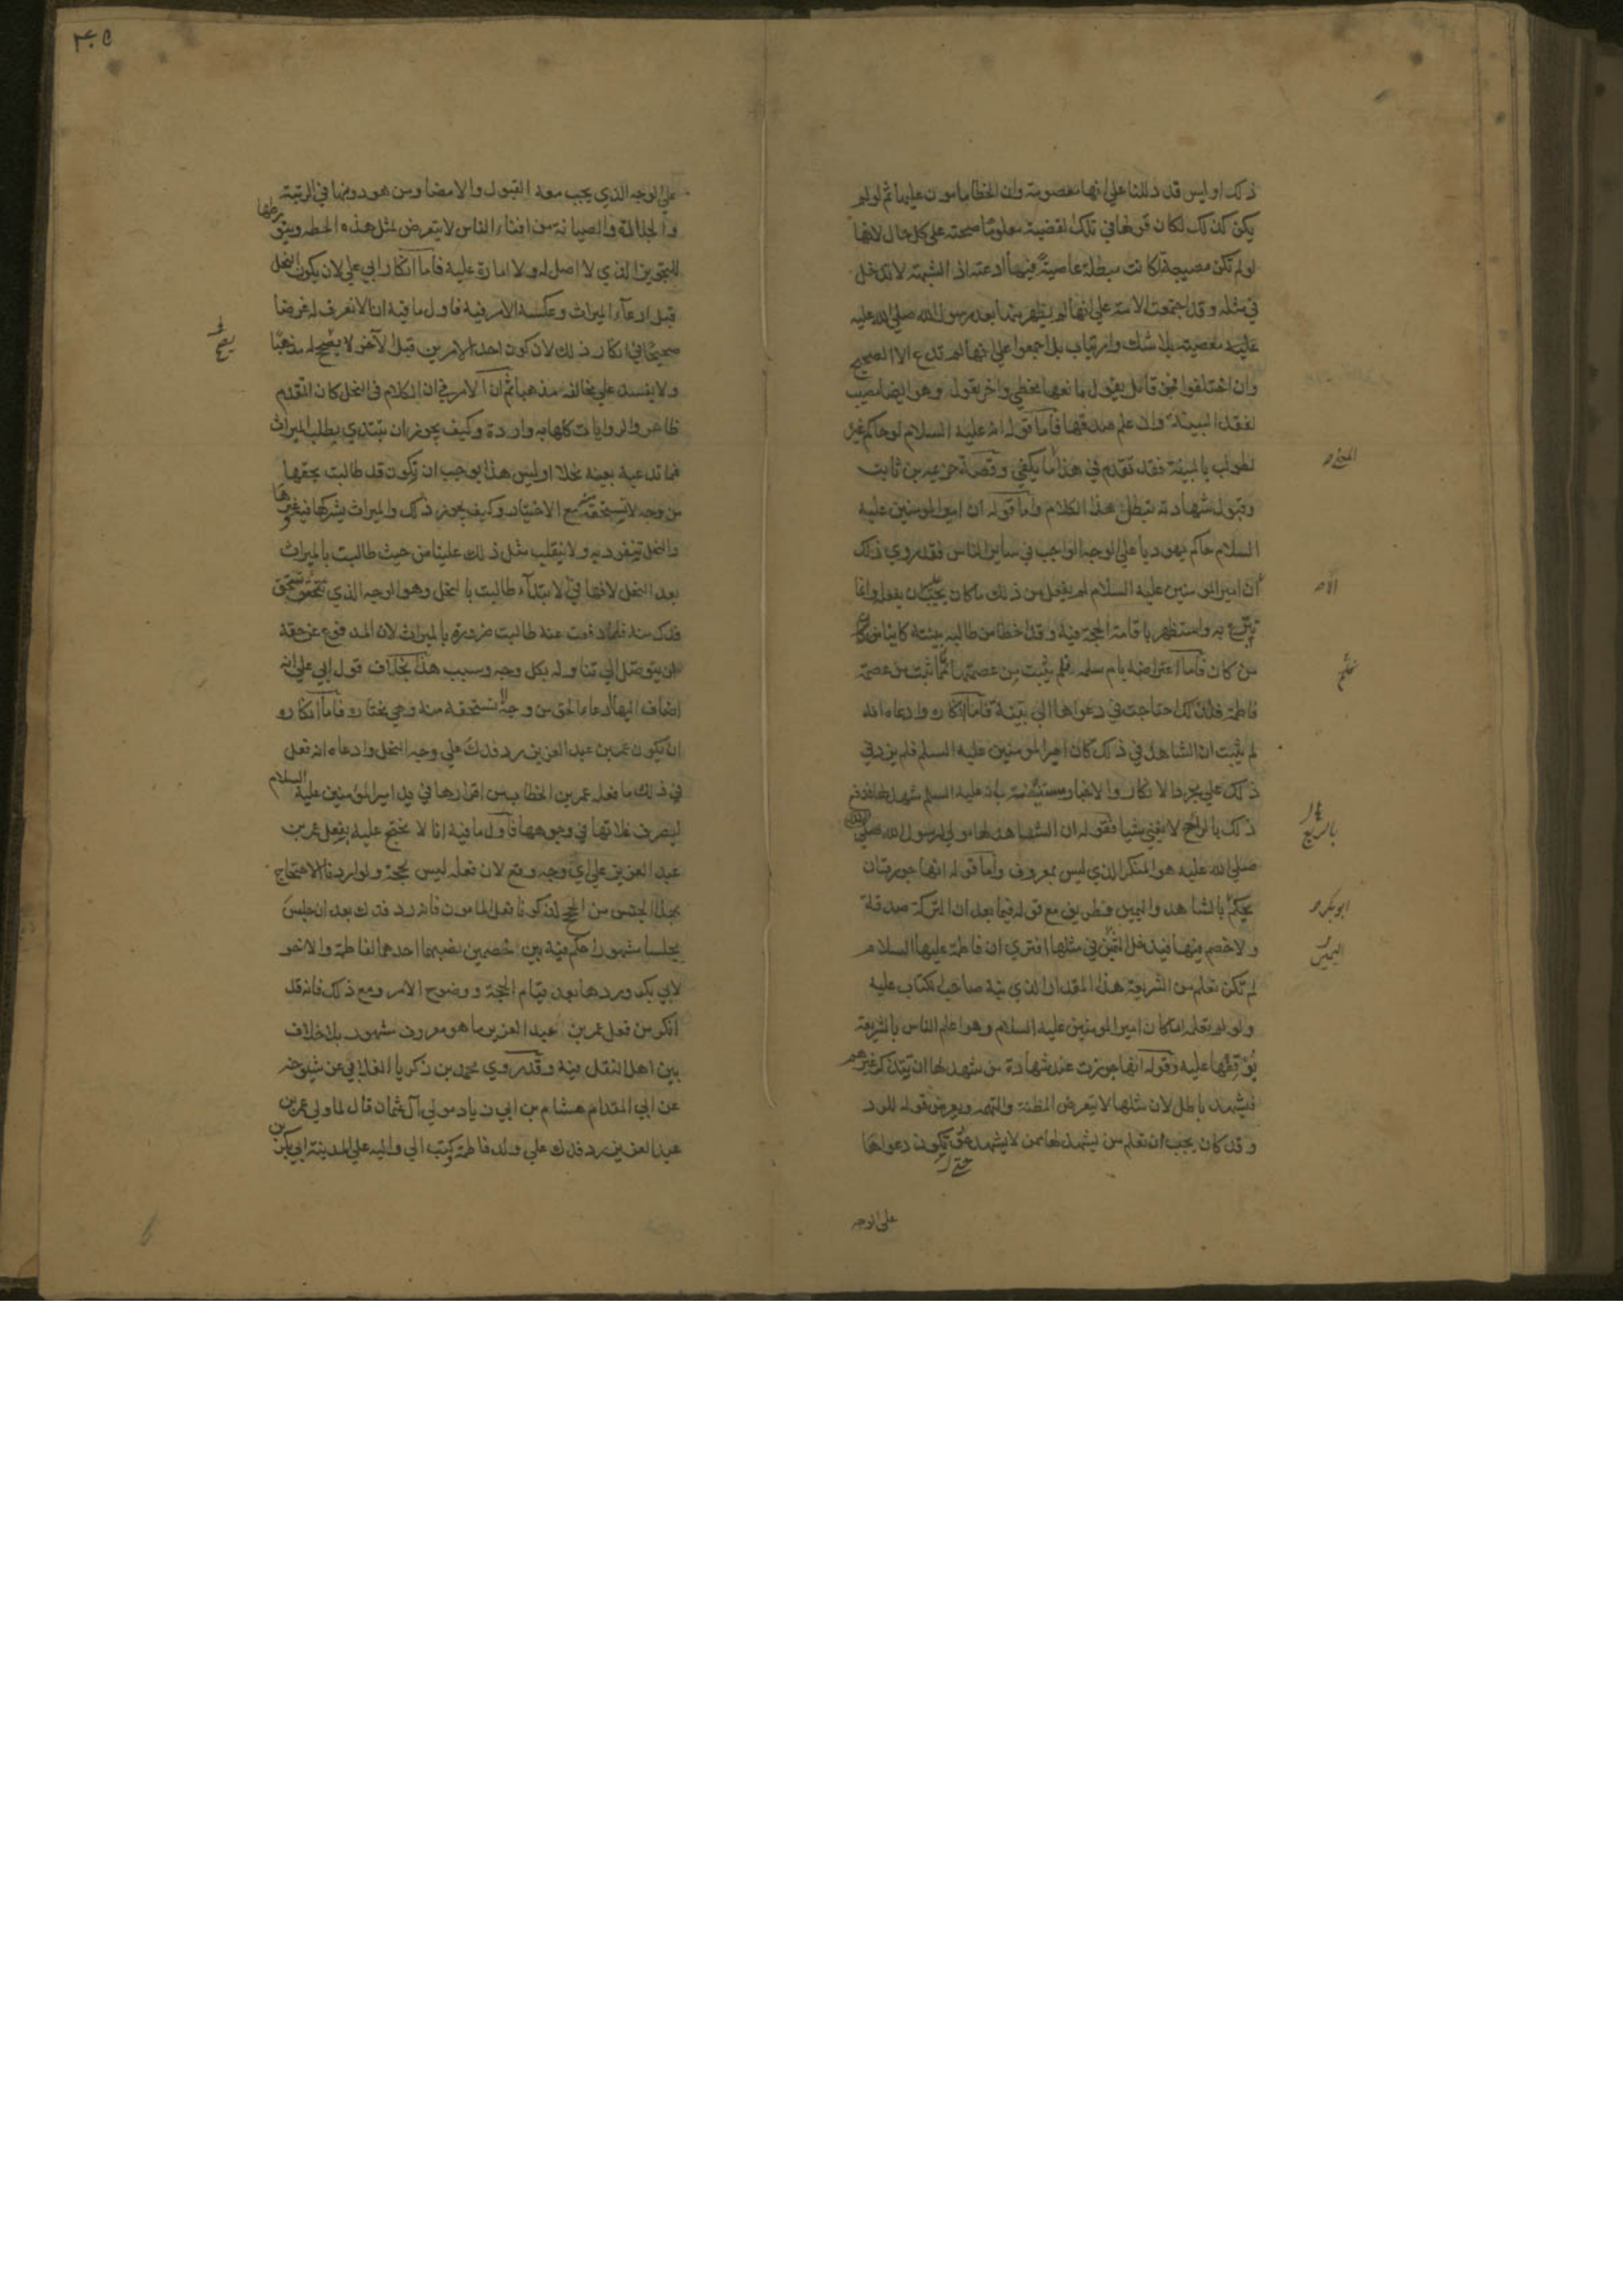 ذلك اوليس قد دللنا علي انها معصومة وان الخطا مامون عليها ثم لو لم
يكن كذلك لكان قولها في تلك القضية معلومًا صحته علي كل حال لانها
لو لم تكن مصيبة لكانت مبطلة عاصية فيما ادعته اذ الشبهة لا تدخل
في مثله وقد اجتمعت الامة علي انها لم يظهر منها بعد رسول الله صلي الله عليه
عليه معصية بلا شك وارتياب بل اجمعوا علي انها لم تدع الا الصحيح
وان اختلفوا فمن قائل يقول مانعها مخطي واخر يقول وهو ايضا مصيب
لفقد البينة وان علم صدقها فأما قوله انه عليه السلام لو حاكم غيره
لطولب بالبينة فقد تقدم في هذا ما يكفي وقصة خزيمة بن ثابت
وقبول شهادته تبطل هذا الكلام وأما قوله ان امير المومنين عليه
السلام حاكم يهوديا علي الوجه الواجب في ساير الناس فقد روي ذلك
ان امير المومنين عليه السلام لم يفعل من ذلك ما كان يجب عليه ان يفعله وانما
تبرع به واستظهر باقامة الحجة فيه وقد اخطا من طالبه ببينة كائنا من كان
من كان فأما اعتراضه بام سلمة فلم يثبت من عصمتها ما ثبت من عصمة
فاطمة فلذلك احتاجت في دعواها الي بينة فأما انكاره وادعاءه انه
لم يثبت ان الشاهد في ذلك كان امير المومنين عليه السلم فلم يزد في
ذلك علي مجرد الانكار والاخبار مستفيضة بانه عليه السلم شهد لها فدفع
ذلك بالراح لا يغني شيا فقوله ان الشاهد لها مولي لرسول الله صلي الله
صلي الله عليه هو المنكر الذي ليس بمعروف وأما قوله انها جوزت ان
يحكم بالشاهد واليمين فطريف مع قوله فيما بعد ان التركة صدقة
ولا خصم فيها فيدخل اليمين في مثلها افتري ان فاطمة عليها السلام
لم تكن تعلم من الشريعة هذا المقدار الذي نبه صاحب الكتاب عليه
ولو لم تعلمه اما كان امير المومنين عليه السلام وهو اعلم الناس بالشريعة
يوقفها عليه وقوله انها جوزت عند شهادة من شهد لها ان يتذكر غيرهم
فيشهد باطل لان مثلها لا يتعرض للظنة والتهمة ويعرض قوله للرد
وقد كان يجب ان تعلم من يشهد لها ممن لا يشهد حتى تكون دعواها
على الوجه
المخ
الام
فلم
بالريع
ابو بكر
اليمين
٣٠٥
علي الوجه الذي يجب معه القبول والامضا ومن هو دونها في الرتبة
والجلالة والصيانة من افناء الناس لا يتعرض لمثل هذه الخطة ويتورطها
للتجويز الذي لا اصل له ولا امارة عليه فأما انكار ابي علي لان يكون النحل
قبل ادعاء الميراث وعكسه الامر فيه فاول ما فيه انا لا نعرف له غرضا
صحيحا في انكار ذلك لان كون احد الامرين قبل الآخر لا يصح له مذهبًا
ولا يفسد علي مخالفه مذهبا ثم ان الامر في ان الكلام في النحل كان المتقدم
ظاهر والروايات كلها به واردة وكيف يجوز ان تبتدي بطلب الميراث
فما تدعيه بعينه نحلا اوليس هذا يوجب ان تكون قد طالبت بحقها
من وجه لا تستحقه مع الاختيار وكيف يجوز ذلك والميراث يشركها فيه غيرها
والنحل تنفرد به ولا ينقلب مثل ذلك علينا من حيث طالبت بالميراث
بعد النحل لانها في الابتداء طالبت بالنحل وهو الوجه الذي تستحق
فدك منه فلما دفعت عنه طالبت ضرورة بالميراث لان المدفوع عن حقه
ان يتوصل الي تناوله بكل وجه وسبب هذا بخلاف قول ابي علي انه
اضاف اليها ادعاء الحق من وجه لا تستحقه منه وهي مختارة فأما انكاره
ان يكون عمر بن عبد العزيز رد فدك علي وجه النحل وادعاه انه فعل
في ذلك ما فعله عمر بن الخطاب من اقرارها في يد امير المؤمنين عليه السلام
ليصرف غلاتها في وجوهها فأول ما فيه انا لا نحتج عليه بفعل عمر بن
عبد العزيز علي اي وجه وقع لان فعله ليس بحجة ولو اردنا الاحتجاج
بهذا الجنس من الحجج لذكرنا فعل المامون فانه رد فدك بعد ان جلس
مجلسا مشهورا حكم فيه بين خصمين نصبهما احدهما لفاطمة والاخر
لابي بكر وردها بعد قيام الحجة ووضوح الامر ومع ذلك فانه قد
انكر من فعل عمر بن عبد العزيز ما هو معروف مشهور بلا خلاف
بين اهل النقل فيه وقد روي محمد بن زكريا الغلابي عن شيوخه
عن ابي المقدام هشام بن ابي زياد مولي آل عثمان قال لما ولي عمر بن
عبد العزيز رد فدك علي ولد فاطمة وكتب الي واليه علي المدينة ابي بكر بن
يصح